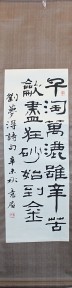 千淘萬漉雖辛苦
吹盡狂砂始到金
劉夢得詩句辛未